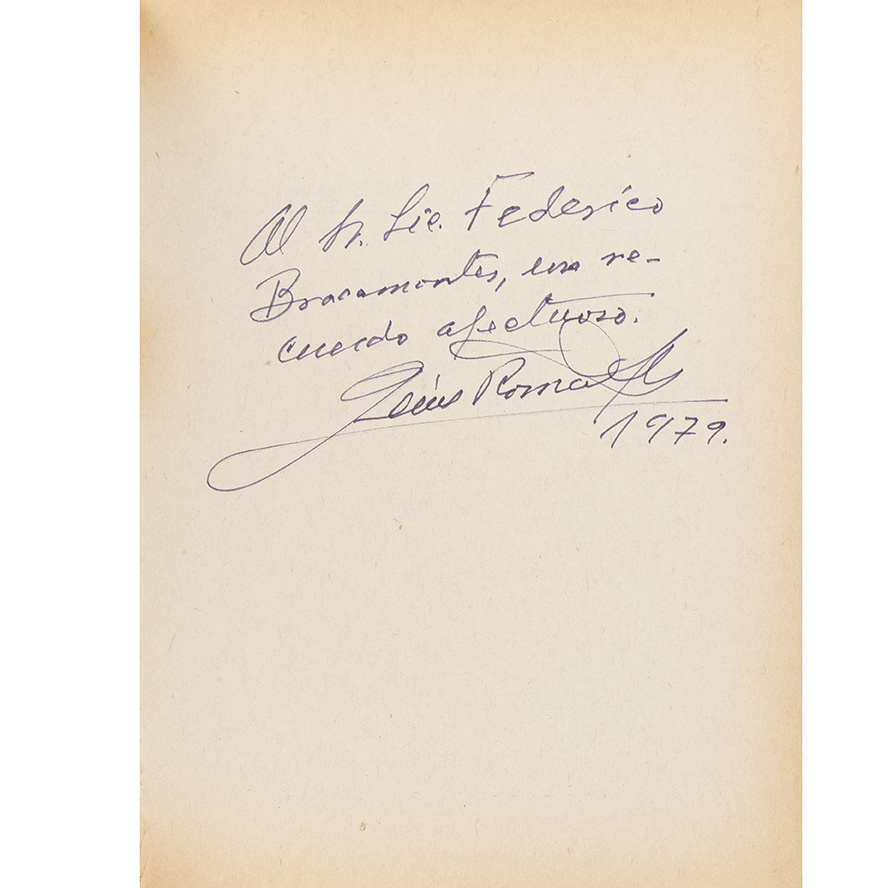 Al Sr. Lic. Federico
Bracamontes, un re-
cuerdo afectuoso.
Jesús Romero
1979.